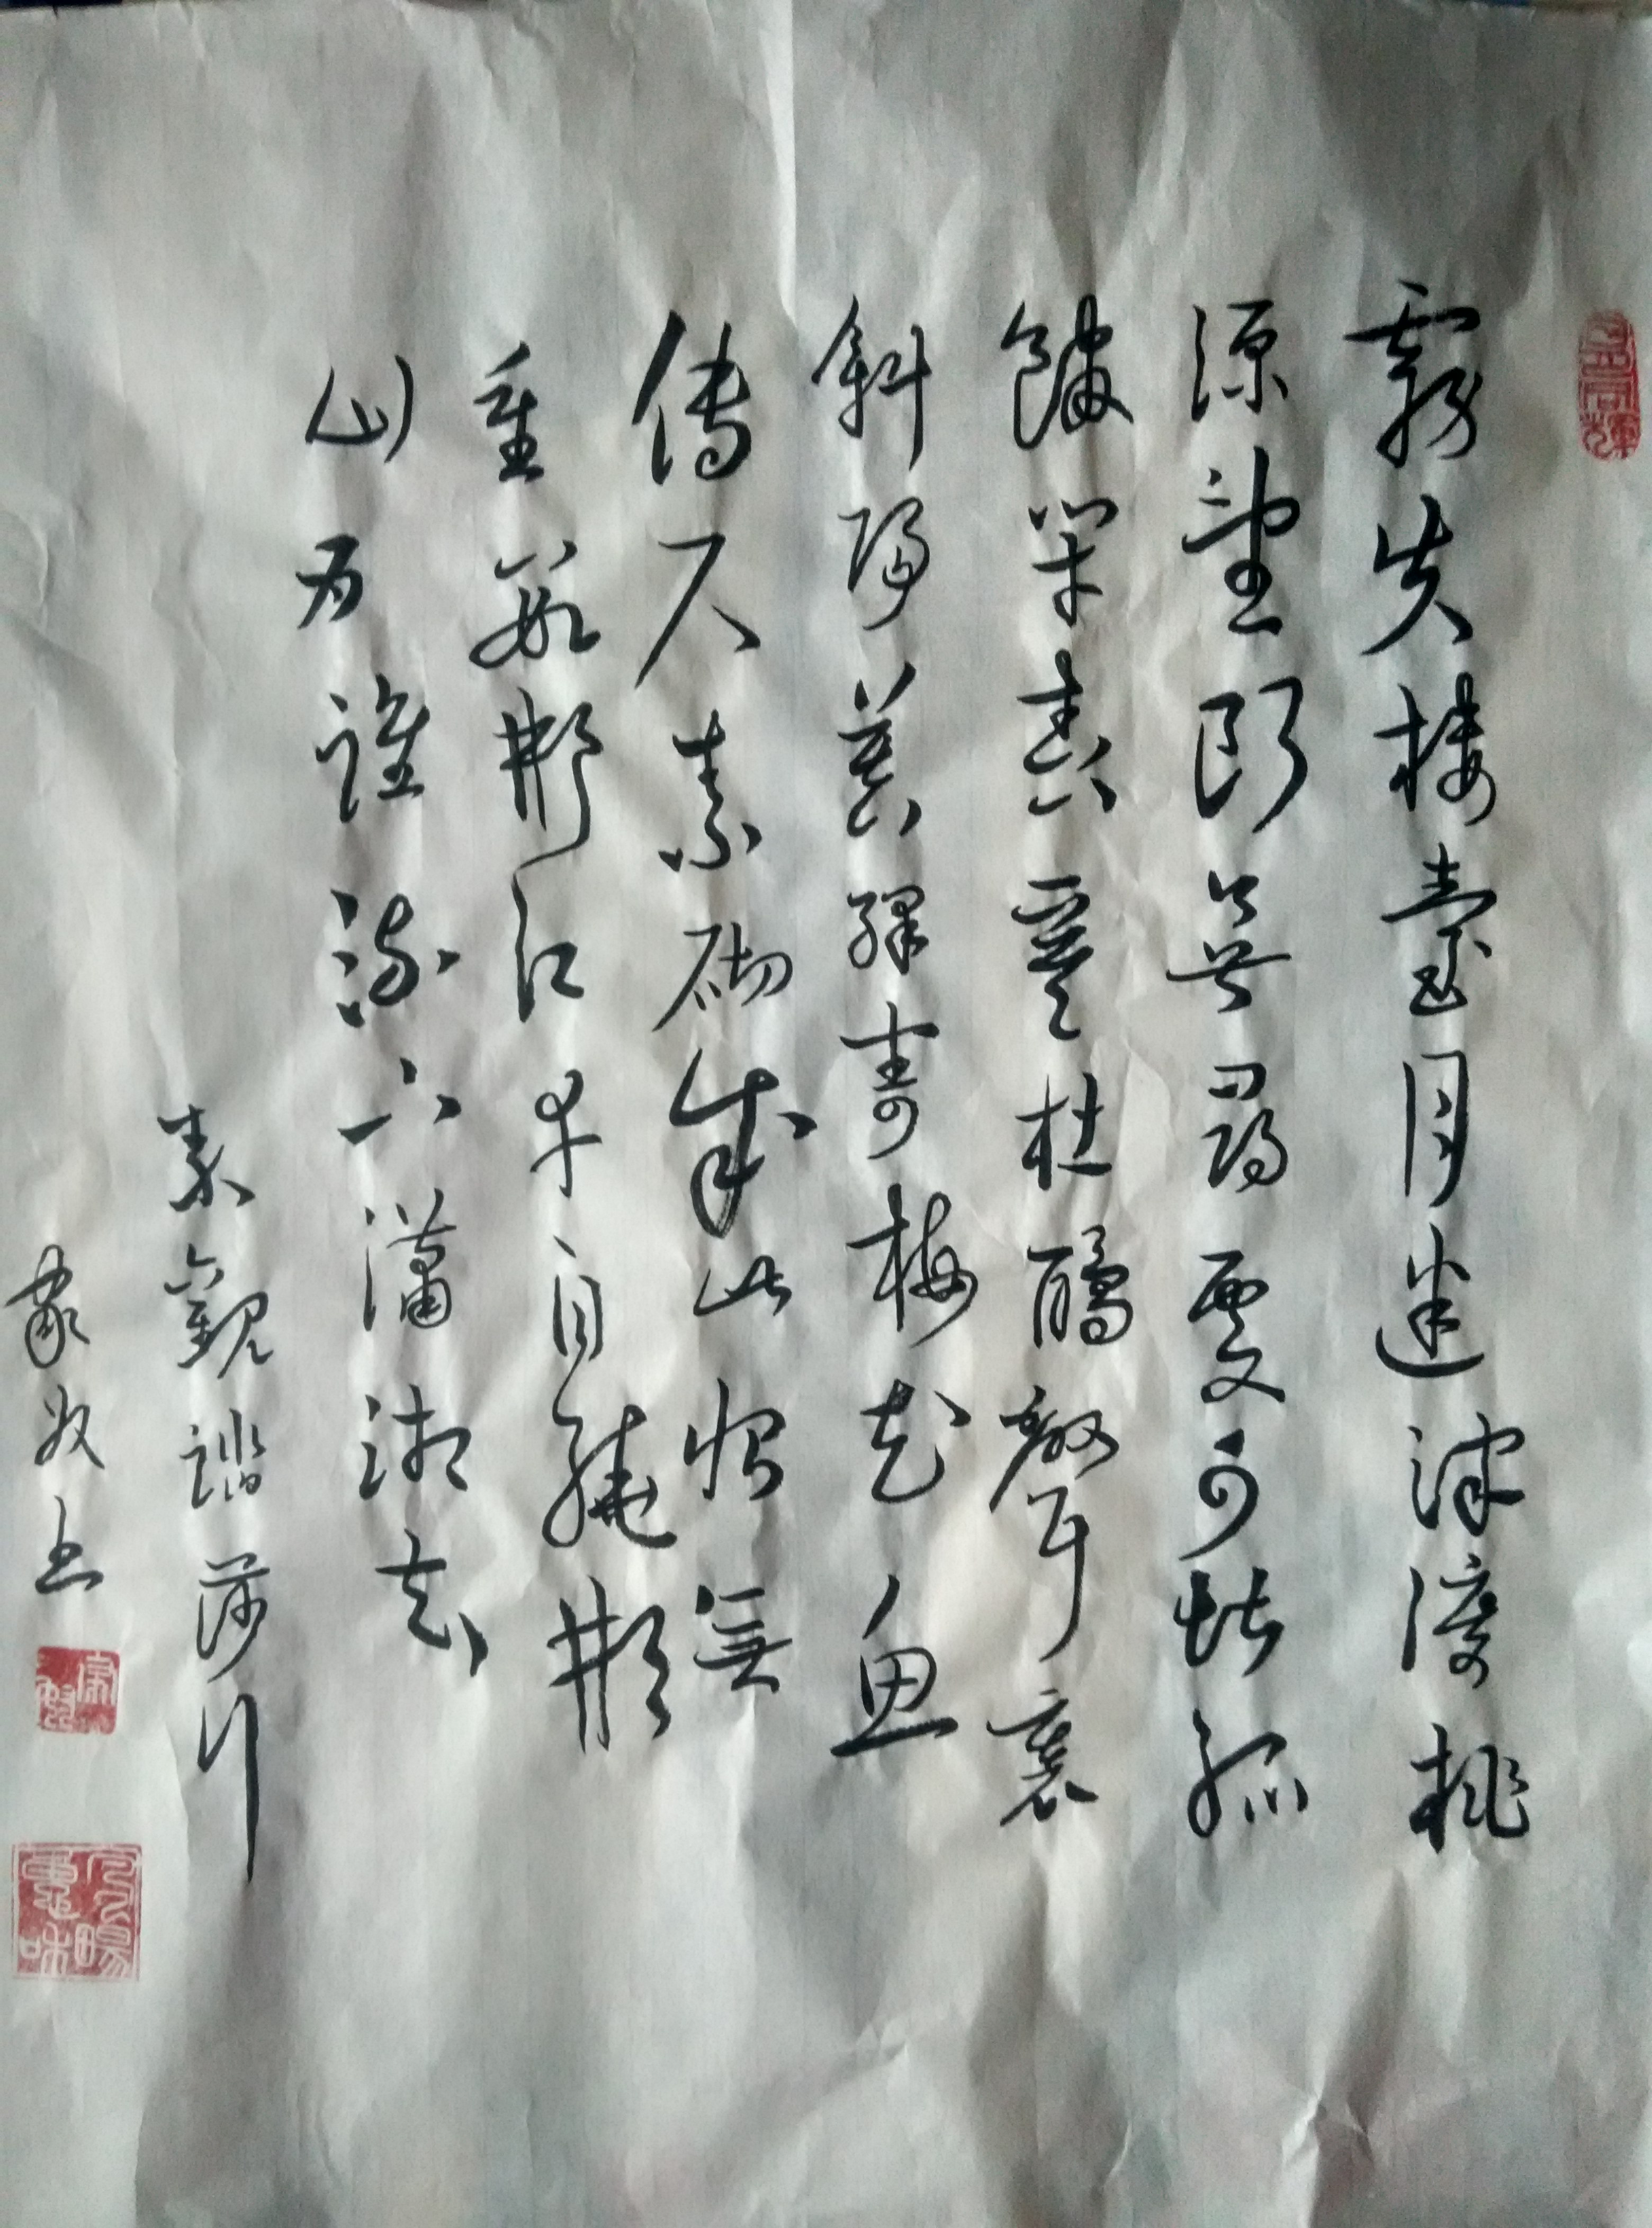 霧失樓臺月迷津渡桃
源望斷無尋處可堪孤
館閉春寒杜鵑聲裏
斜陽暮驛寄梅花魚
傳尺素砌成此恨無
重數郴江幸自繞郴
山為誰流下瀟湘去
秦觀踏莎行
書